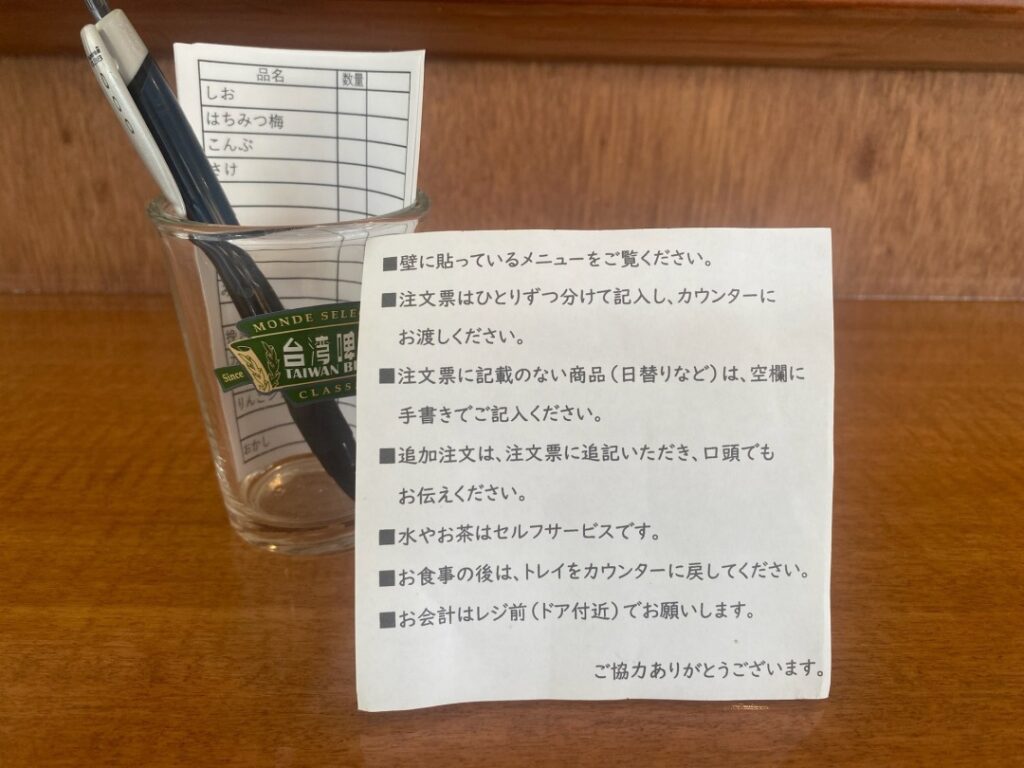 品名 数量
しお
はちみつ梅
こんぶ
さけ
MONDE SELEC
台湾啤
TAIWAN BE
Since
CLASS
りんご
おかし
■壁に貼っているメニューをご覧ください。
■注文票はひとりずつ分けて記入し、カウンターに
お渡しください。
■注文票に記載のない商品(日替りなど)は、空欄に
手書きでご記入ください。
■追加注文は、注文票に追記いただき、口頭でも
お伝えください。
■水やお茶はセルフサービスです。
■お食事の後は、トレイをカウンターに戻してください。
■お会計はレジ前(ドア付近)でお願いします。
ご協力ありがとうございます。